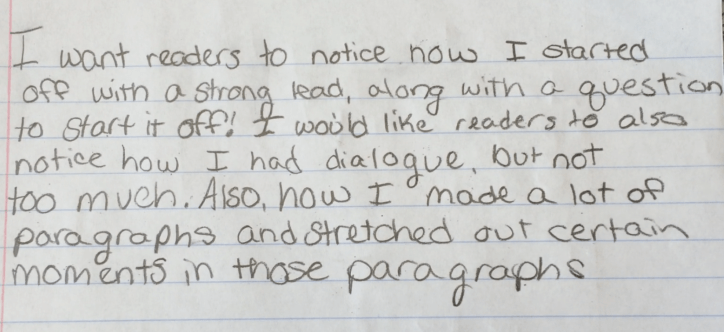 I want readers to notice how I started
off with a strong lead, along with a question
to start it off! I would like readers to also
notice how I had dialogue, but not
too much. Also, how I made a lot of
paragraphs and stretched out certain
moments in those paragraphs